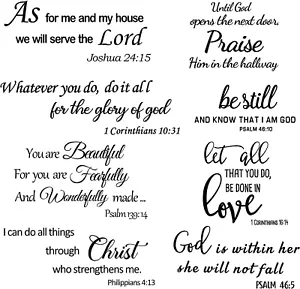 As for me and my house
we will serve the Lord
Joshua 24:15
Whatever you do, do it all
for the glory of god
1 Corinthians 10:31
You are Beautiful
For you are Fearfully
And Wonderfully made ...
Psalm 139:14
I can do all things
through Christ
who strengthens me.
Philippians 4:13
Until God
opens the next door,
Praise
Him in the hallway
be still
AND KNOW THAT I AM GOD
PSALM 46:10
let all
THAT YOU DO,
BE DONE IN
love
1 Corinthians 16:14
God is within her
she will not fall
PSALM 46:5